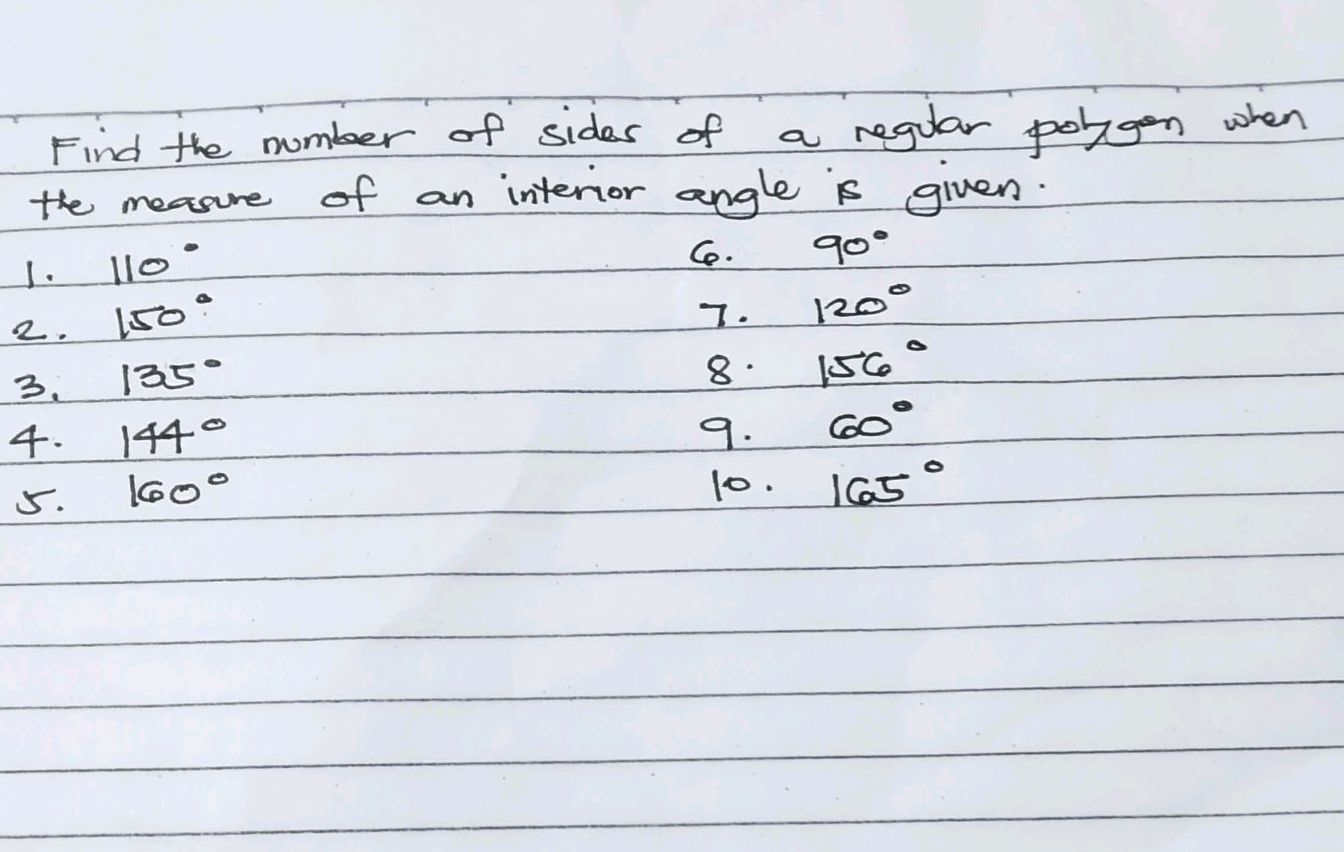 Find the number of sides of a regular polygon when
the measure of an interior angle is given.
1. 110° 6. 90°
2. 150° 7. 120°
3. 135° 8. 156°
4. 144° 9. 60°
5. 160° 10. 165°